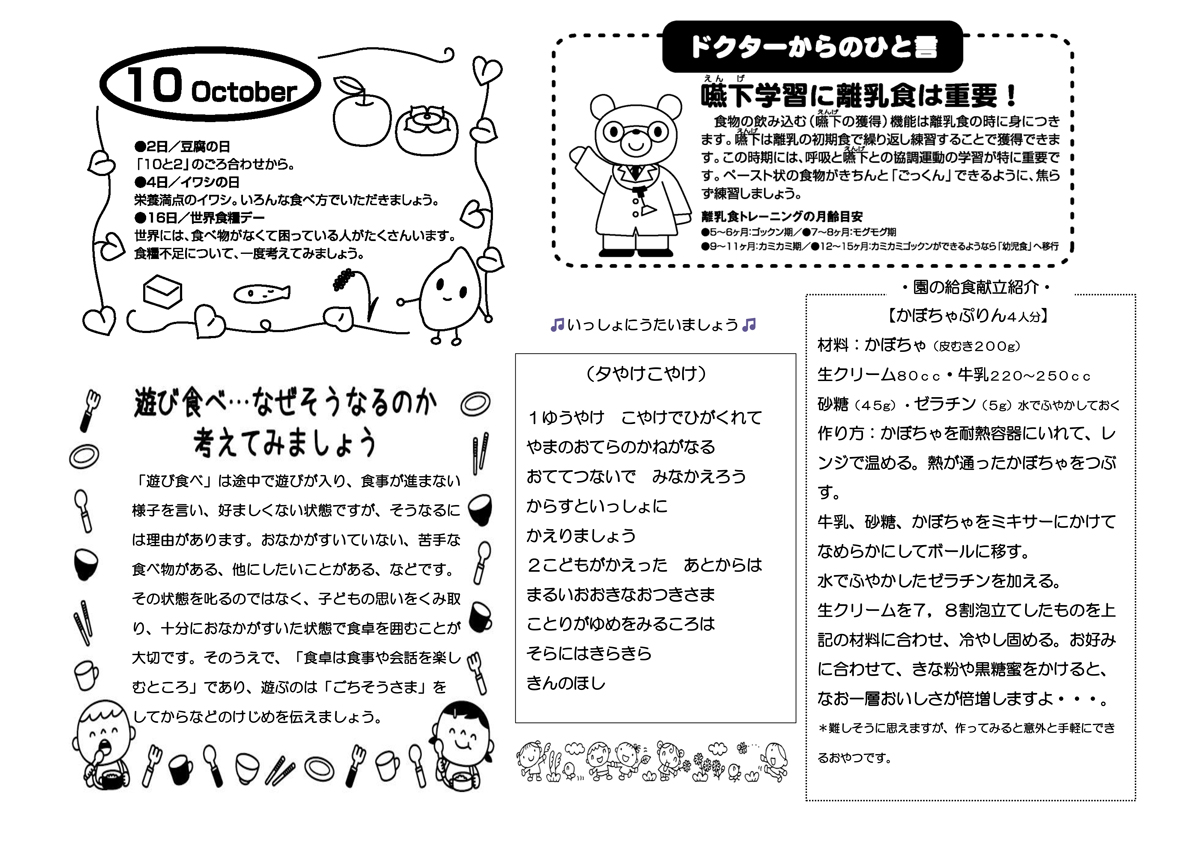 10 October
●2日／豆腐の日
「10と2」のごろ合わせから。
●4日／イワシの日
栄養満点のイワシ。いろんな食べ方でいただきましょう。
●16日／世界食糧デー
世界には、食べ物がなくて困っている人がたくさんいます。
食糧不足について、一度考えてみましょう。
ドクターからのひと言
えん げ
嚥下学習に離乳食は重要！
えんげ
食物の飲み込む（嚥下の獲得）機能は離乳食の時に身につき
えんげ
ます。嚥下は離乳の初期食で繰り返し練習することで獲得できま
えんげ
す。この時期には、呼吸と嚥下との協調運動の学習が特に重要で
す。ペースト状の食物がきちんと「ごっくん」できるように、焦ら
ず練習しましょう。
離乳食トレーニングの月齢目安
●5～6ヶ月：ゴックン期／●7～8ヶ月：モグモグ期
●9～11ヶ月：カミカミ期／●12～15ヶ月：カミカミゴックンができるようなら「幼児食」へ移行
遊び食べ…なぜそうなるのか
考えてみましょう
「遊び食べ」は途中で遊びが入り、食事が進まない
様子を言い、好ましくない状態ですが、そうなるに
は理由があります。おなかがすいていない、苦手な
食べ物がある、他にしたいことがある、などです。
その状態を叱るのではなく、子どもの思いをくみ取
り、十分におなかがすいた状態で食卓を囲むことが
大切です。そのうえで、「食卓は食事や会話を楽し
むところ」であり、遊ぶのは「ごちそうさま」を
してからなどのけじめを伝えましょう。
♫いっしょにうたいましょう♫
（夕やけこやけ）
１ゆうやけ　こやけでひがくれて
やまのおてらのかねがなる
おててつないで　みなかえろう
からすといっしょに
かえりましょう
２こどもがかえった　あとからは
まるいおおきなおつきさま
ことりがゆめをみるころは
そらにはきらきら
きんのほし
・園の給食献立紹介・
【かぼちゃぷりん４人分】
材料：かぼちゃ（皮むき２００ｇ）
生クリーム８０ｃｃ・牛乳２２０～２５０ｃｃ
砂糖（４５ｇ）・ゼラチン（５ｇ）水でふやかしておく
作り方：かぼちゃを耐熱容器にいれて、レ
ンジで温める。熱が通ったかぼちゃをつぶ
す。
牛乳、砂糖、かぼちゃをミキサーにかけて
なめらかにしてボールに移す。
水でふやかしたゼラチンを加える。
生クリームを７，８割泡立てしたものを上
記の材料に合わせ、冷やし固める。お好み
に合わせて、きな粉や黒糖蜜をかけると、
なお一層おいしさが倍増しますよ・・・。
＊難しそうに思えますが、作ってみると意外と手軽にでき
るおやつです。